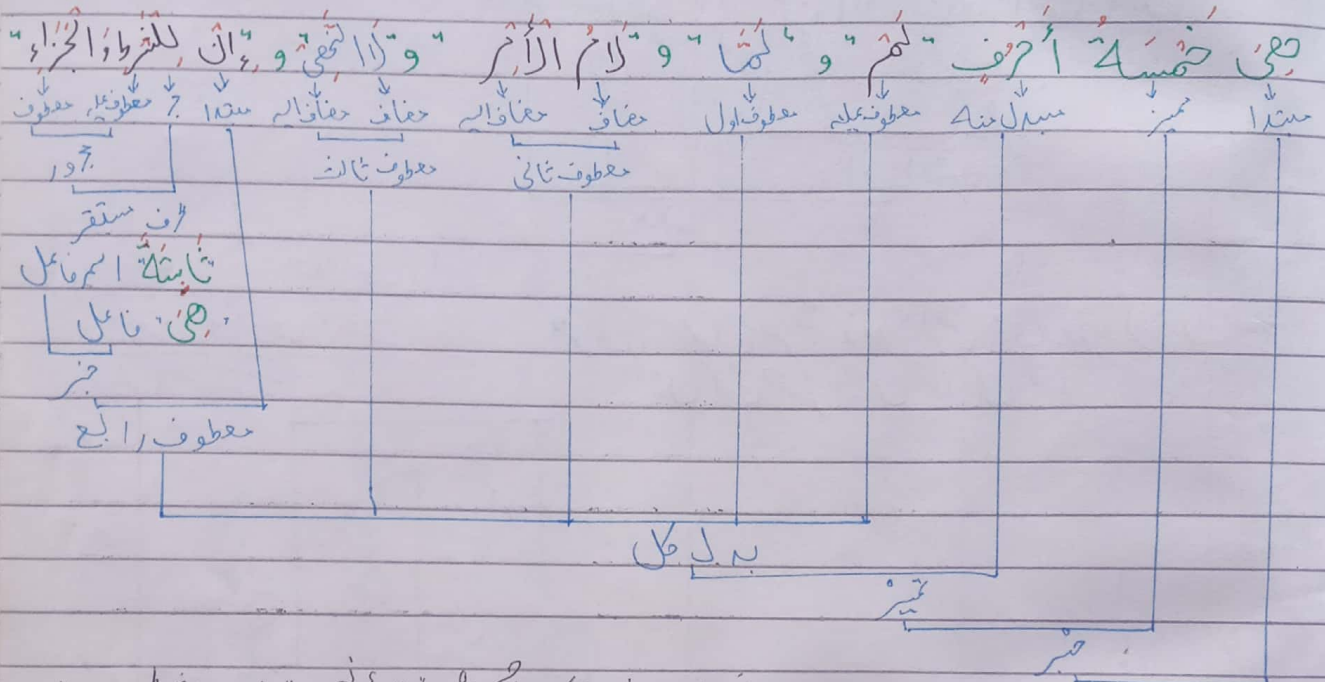 هِيَ خَمْسَةُ أَحْرُفٍ "لَمْ" و "لَمَّا" و "لَامُ الْأَمْرِ" و "لَا النَّهْيِ" و "إِنْ لِلشَّرْطِ وَالْجَزَاءِ"
مبتدا ممیز مبدل منہ معطوف علیہ معطوف اول مضاف مضاف الیہ مضاف مضاف الیہ مبتدا جر معطوف علیہ معطوف
معطوف ثانی معطوف ثالث مجرور
ظرف مستقر
"ثَابِتَةٌ" اسم فاعل
"هِيَ" فاعل
خبر
معطوف رابع
بدل کل
تمیز
خبر